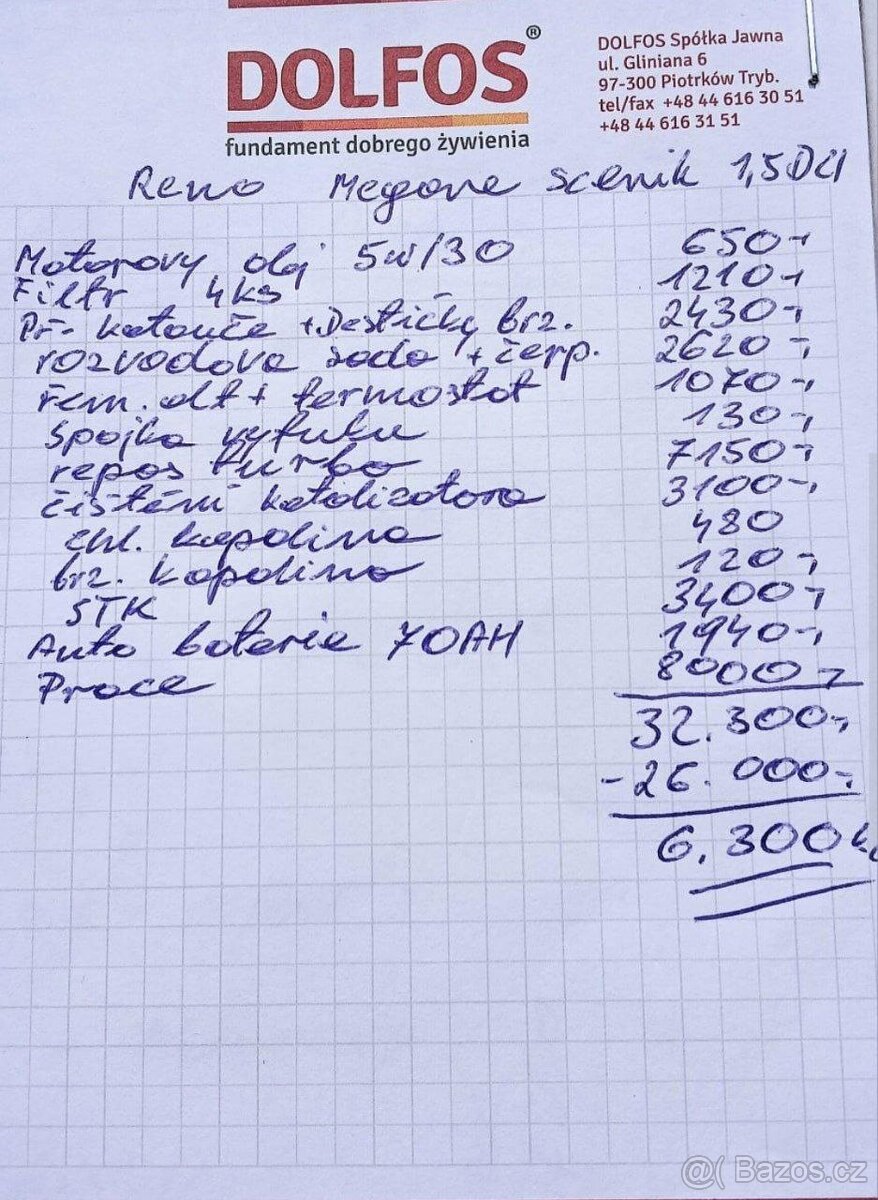 DOLFOS®
fundament dobrego żywienia
DOLFOS Spółka Jawna
ul. Gliniana 6
97-300 Piotrków Tryb.
tel/fax +48 44 616 30 51
+48 44 616 31 51
Reno Megane scenik 1,5 DCI
Motorovy olej 5W/30 650,-
Filtr 4ks 1210,-
Př. kotouče + Destičky brz. 2430,-
rozvodova sada + čerp. 2620,-
řem. alt + termostat 1070,-
spojka vyfuku 130,-
repas turbo 7150,-
čištění katalizatora 3100,-
chl. kapalina 480
brz. kapalina 120,-
STK 3400,-
Auto baterie 70AH 1940,-
Prace 8000,-
32.300,-
-26.000,-
6.300 k
@( Bazos.cz